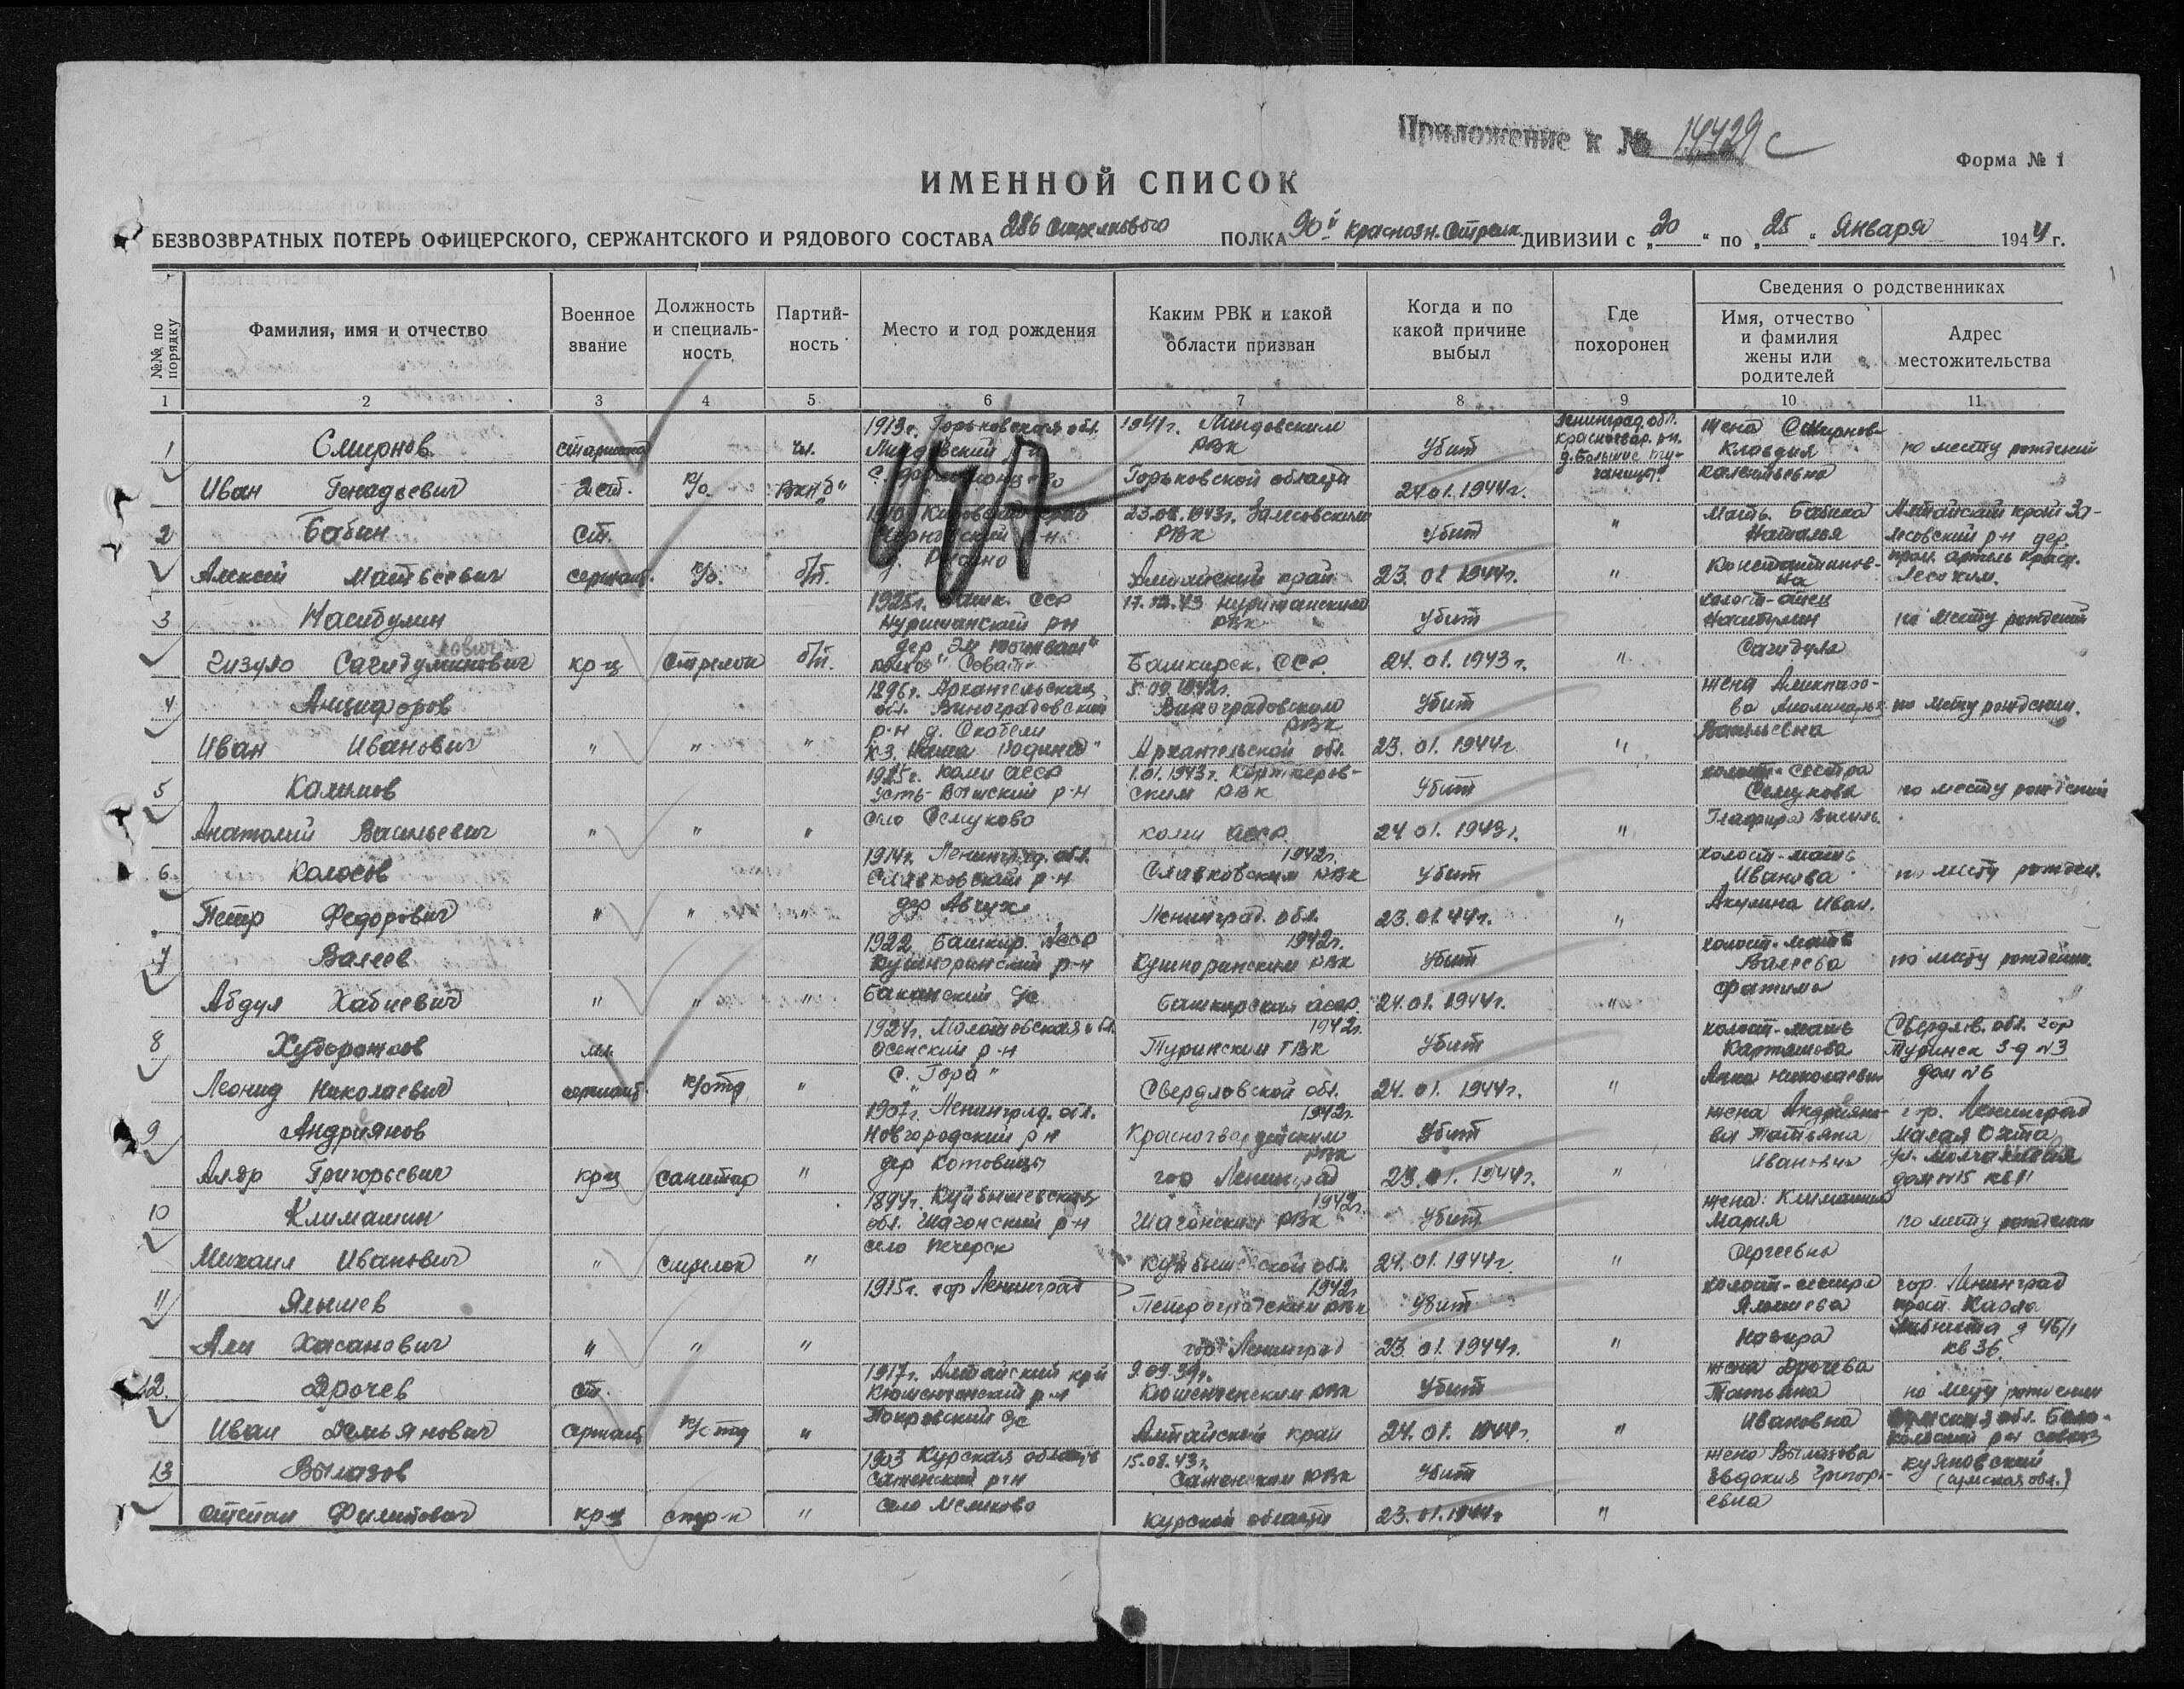 Приложение к № 14429с
Форма № 1
ИМЕННОЙ СПИСОК
БЕЗВОЗВРАТНЫХ ПОТЕРЬ ОФИЦЕРСКОГО, СЕРЖАНТСКОГО И РЯДОВОГО СОСТАВА 286 Стрелкового ПОЛКА 90й Краснозн. Стрелк. ДИВИЗИИ с „20“ по „25“ Января 1944 г.
№№ по порядку
Фамилия, имя и отчество
Военное звание
Должность и специальность
Партийность
Место и год рождения
Каким РВК и какой области призван
Когда и по какой причине выбыл
Где похоронен
Сведения о родственниках
Имя, отчество и фамилия жены или родителей
Адрес местожительства
1 2 3 4 5 6 7 8 9 10 11
1 Смирнов Иван Генадьевич
старшина
к/о.
чл. ВКП/б"
1913г. Горьковская обл.
1941г. Линдовским РВК Горьковской области
Убит 24.01.1944г.
Ленинград. обл. Красногвар. рн. д. Большие
жена Смирнова Клавдия
по месту рождений
2 Бабин Алексей Матвеевич
ст. сержант.
к/о.
б/п.
23.08.1943г. Залесовским РВК Алтайский край
Убит 23.01 1944г.
"
мать. Бабина Наталья Константиновна
Алтайский край Залесовский р-н дер. пром. артель Красн. Лесохим.
3 Насибулин Гизуло
кр-ц
Стрелок
б/п.
1925г. Башк. ССР Нуримановский рн
17. 43 Нуримановским РВК Башкирск. ССР.
Убит 24.01.1943г.
"
холост-отец Насибулин Сагидула
по месту рождений
4 Анциферов Иван Иванович
" " "
1896г. Архангельская обл. Виноградовский р-н д. Скобели кз. Наша Родина"
5.09.1942г. Виноградовским РВК Архангельской обл.
Убит 23.01.1944г
"
жена Васильевна
по месту рождении.
5 Калимов Анатолий Васильевич
" " "
1925г. Коми АССР Усть-Вымский р-н село Семуково
1.01.1943г. Корткеровским РВК Коми АССР
Убит 24.01.1943г.
"
холост-сестра Семукова Глафира Василь.
по месту рождений
6 Колосов Петр Федорович
" " "
1914г. Ленинград. обл. Славковский р-н дер
1942г. Славковским РВК Ленинград. обл.
Убит 23.01.44г.
"
холост-мать Иванова Акулина Иван.
по месту рожден.
7 Валеев Абдул Хабиевич
" " "
1922 Башкир. АССР Кушноринский р-н Баканский с/с
1942г. Кушноранским РВК Башкирская АССР.
Убит 24.01.1944г.
"
холост-мать Валеева Фатима
по месту рождении.
8 Худорожков Леонид Николаевич
мл. сержант.
к/отд
"
1924г. Молотовская обл. Осенский р-н с. Гора"
1942г. Туринским ГВК Свердловской обл.
Убит 24.01.1944г.
"
холост-мать Карташова Анна Николаевн
Свердлов. обл. гор Туринск 3-д №3 дом №6
9 Андриянов Аляр Григорьевич
кр-ц
санитар
"
1907г. Ленинград. обл. Новгородский р-н дер Котовицы
1942г. Красногвардейским РВК гор Ленинград
Убит 23.01.1944г.
"
жена Андриянова Татьяна Ивановна
гор. Ленинград Малая Охта дом №15 кв 11
10 Климашин Михаил Иванович
"
стрелок
"
1894г. Куйбышевская обл. Шагонский р-н село Печерск
1942г. Шагонским РВК Куйбышевской обл.
Убит 24.01.1944г.
"
жена: Климашина Мария Сергеевна
по месту рождении
11 Ялышев Али Хасанович
" " "
1915г. гор Ленинград
1942г. Петроградским РВК гор Ленинград
Убит 23.01.1944г.
"
холост-сестра Ялышева Назира
гор. Ленинград просп. Карла Либкнехта д 45/1 кв 36.
12. Дрочев Иван Демьянович
ст. сержант
к/отд
"
1917г. Алтайский край Покровский с/с
9.09.39г. РВК Алтайский край
Убит 24.01.1944г.
"
жена Дрочева Татьяна Ивановна
по месту рождении
13 Вылазов Степан Филипович
кр-ц
стр-к
"
1903 Курская область Саженский р-н село Мелихово
15.08.43г. Саженским РВК Курской области
Убит 23.01.1944г
"
жена Вылазова Евдокия Григорьевна
куяновский (Сумская обл.)